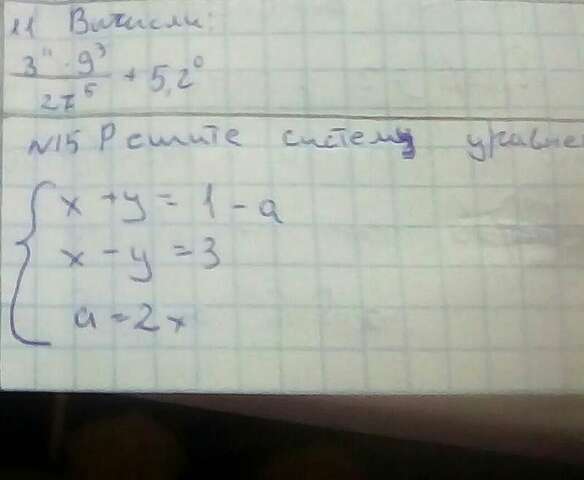 11 Вычисли:
3¹¹ · 9³ / 27⁵ + 5,2⁰
N15 Решите систему уравне
x + y = 1 - a
x - y = 3
a = 2x